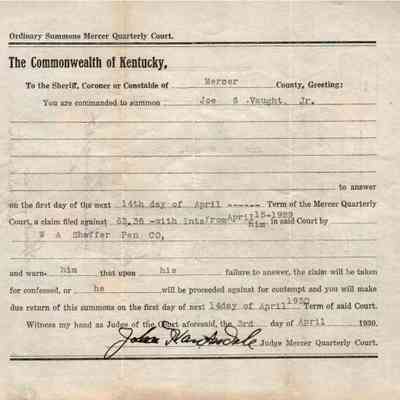 Ordinary Summons Mercer Quarterly Court.
The Commonwealth of Kentucky,
To the Sheriff, Coroner or Constable of Mercer County, Greeting:
You are commanded to summon Joe S .Vaught. Jr.
to answer
on the first day of the next 14th day of April ------ Term of the Mercer Quarterly
Court, a claim filed against 63.36 -with Ints from April 15-1929 him in said Court by
W A Sheffer Pen CO,
and warn- him that upon his failure to answer, the claim will be taken
for confessed, or he will be proceeded against for contempt and you will make
due return of this summons on the first day of next 14day of April 1930 Term of said Court.
Witness my hand as Judge of the Court aforesaid, the 3rd day of April 1930.
Judge Mercer Quarterly Court.